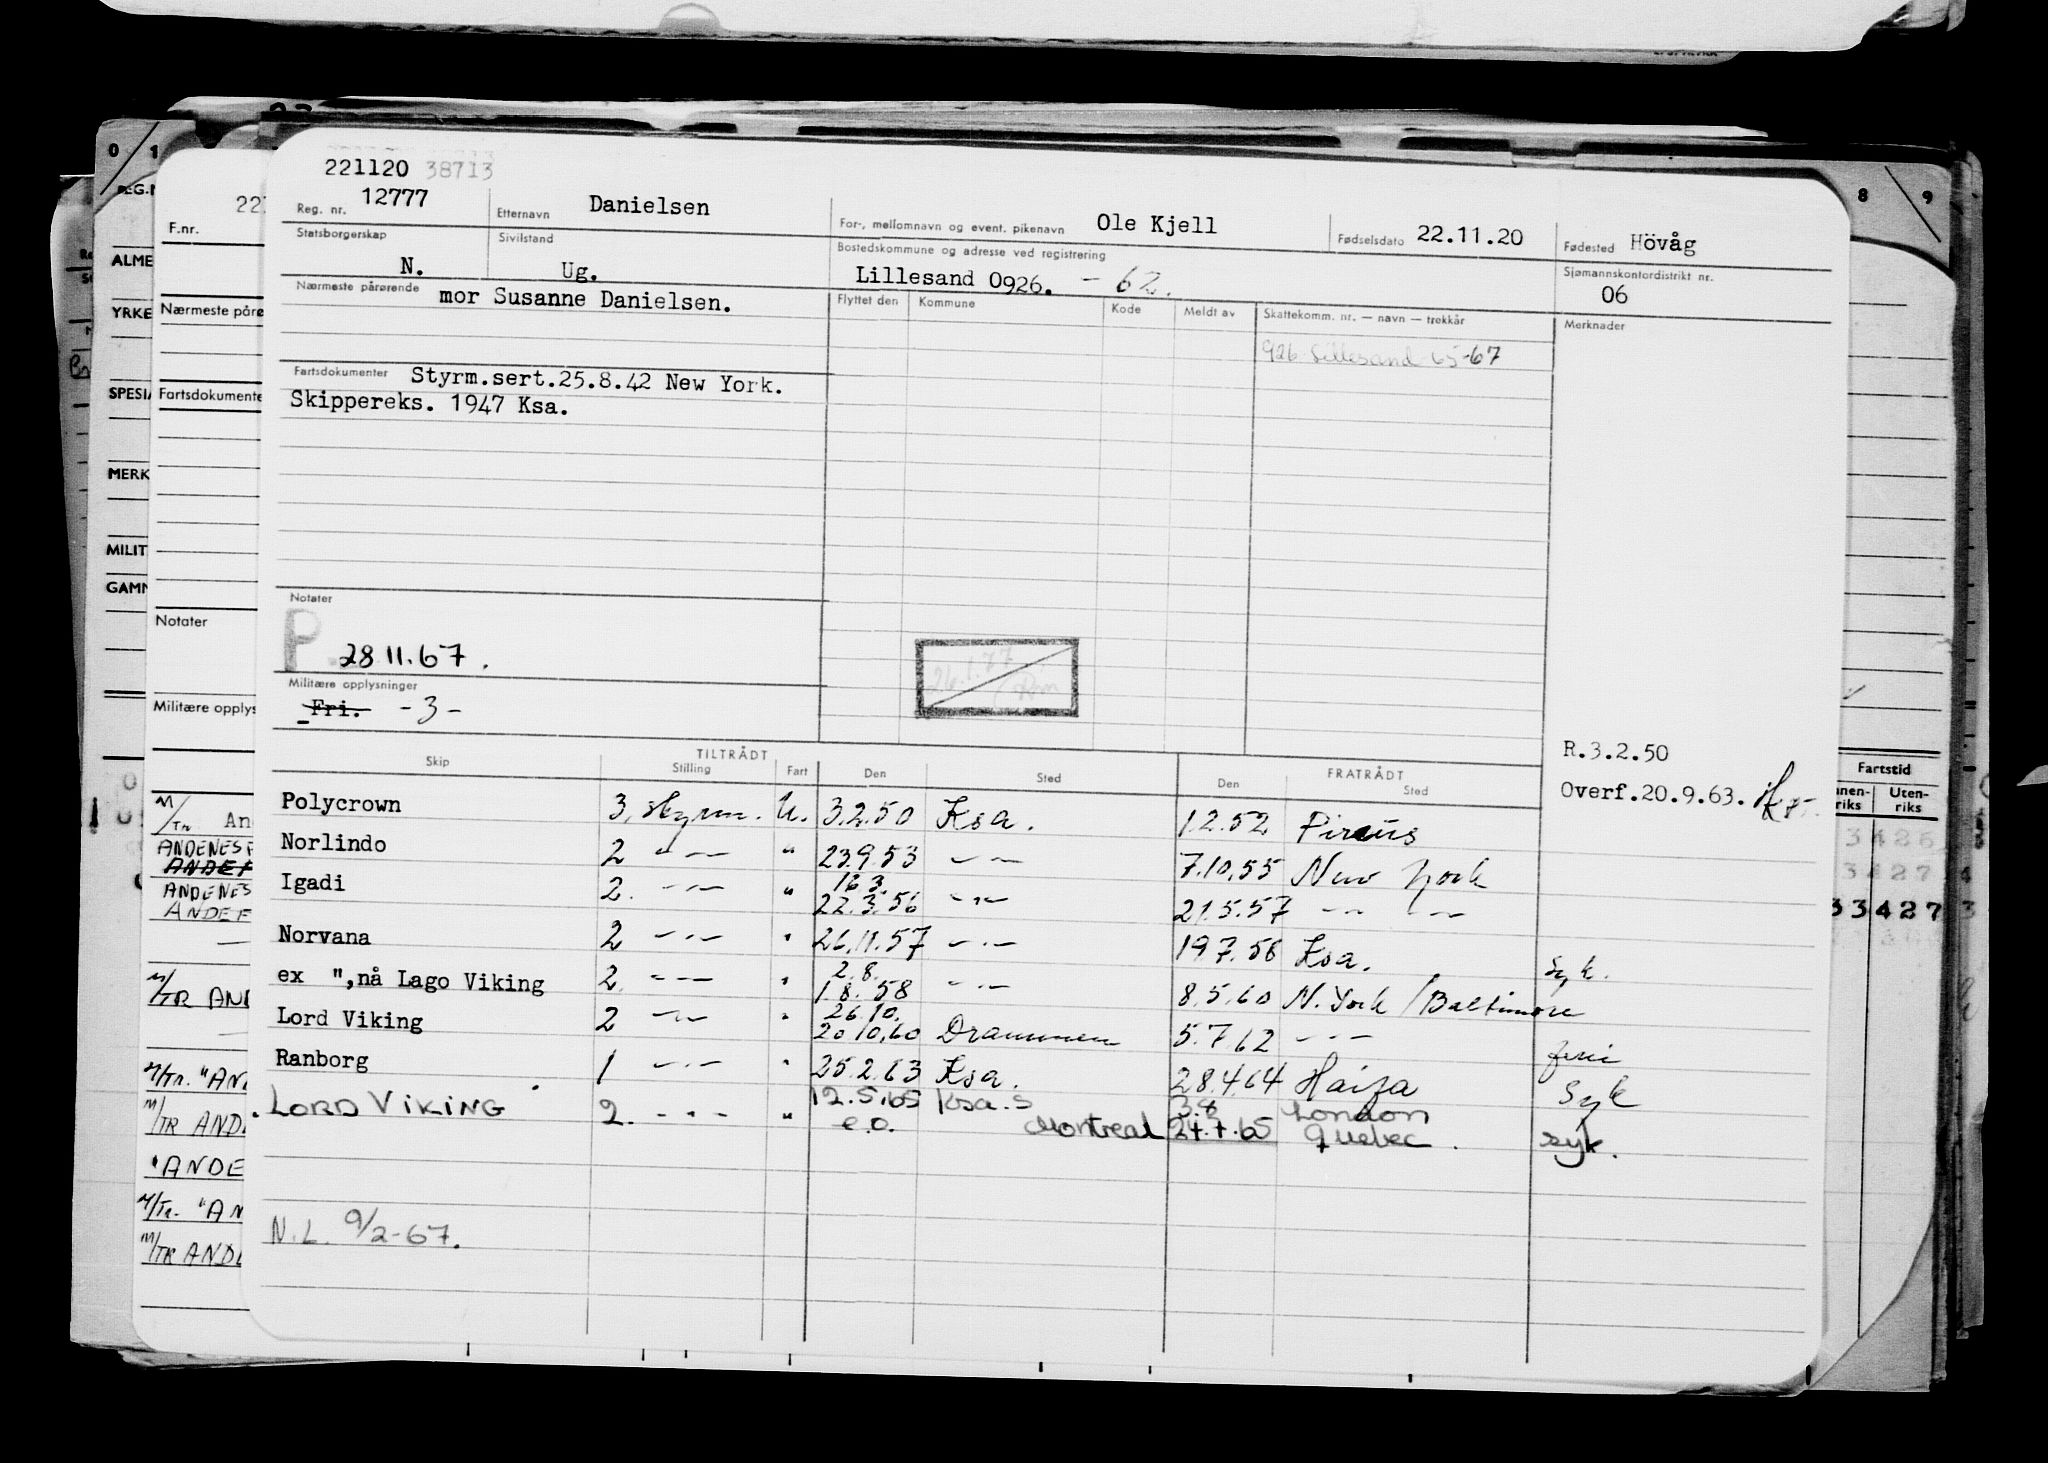 221120 38713
Reg. nr. 12777 Etternavn Danielsen For-, mellomnavn og event. pikenavn Ole Kjell Fødselsdato 22.11.20 Fødested Hövåg
Statsborgerskap N. Sivilstand Ug. Bostedskommune og adresse ved registrering Lillesand 0926. - 62. Sjømannskontordistrikt nr. 06
Nærmeste pårørende mor Susanne Danielsen. Flyttet den Kommune Kode Meldt av Skattekomm. nr. — navn — trekkår Merknader
926 Lillesand 65-67
Fartsdokumenter Styrm.sert.25.8.42 New York.
Skippereks. 1947 Ksa.
Notater
P 28 11.67.
26.1.77
Militære opplysninger
Fri. -3-
R.3.2.50
Overf.20.9.63.
TILTRÅDT FRATRÅDT
Skip Stilling Fart Den Sted Den Sted
Polycrown 3. styrm. U. 3.2.50 Ksa. 1.2.52 Pireus
Norlindo 2 -"- " 23.9.53 -"- 7.10.55 New York
16 3.
Igadi 2. -"- " 22.3.56 -"- 21.5.57 -"- -"-
Norvana 2 -"- " 26.11.57 -"- 19.7.58 Ksa. syk.
2.8.
ex ",nå Lago Viking 2 -"- " 1.8.58 -"- 8.5.60 N. York / Baltimore
26.10.
Lord Viking 2 -"- " 20.10.60 Drammen 5.7.62 -"- ferie
Ranborg 1 -"- " 25.2.63 Ksa. 28.4.64 Haifa Syk
12.5.65 Ksa.S 3.8 London
LORD VIKING 2. -"- " e.o. Montreal 24.7.65 Quebec. syk.
N.L. 9/2-67.
0 1
8 9
F.nr.
ALME
YRKE
Nærmeste pårø
SPESIA
Fartsdokumente
MERK
MILIT
GAMN
Notater
Militære opplys
Fartstid
Uten-
riks
M/Tr An
ANDENES
M/TR AND
M/Tr. "AND
M/TR AND
"ANDE
M/Tr. "AN
M/TR AND
33427